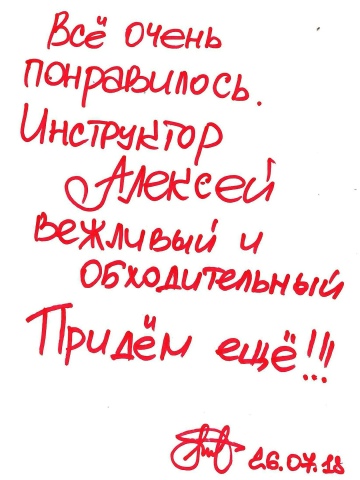 Всё очень
понравилось.
Инструктор
Алексей
вежливый и
обходительный
Придём ещё!!!
26.07.18